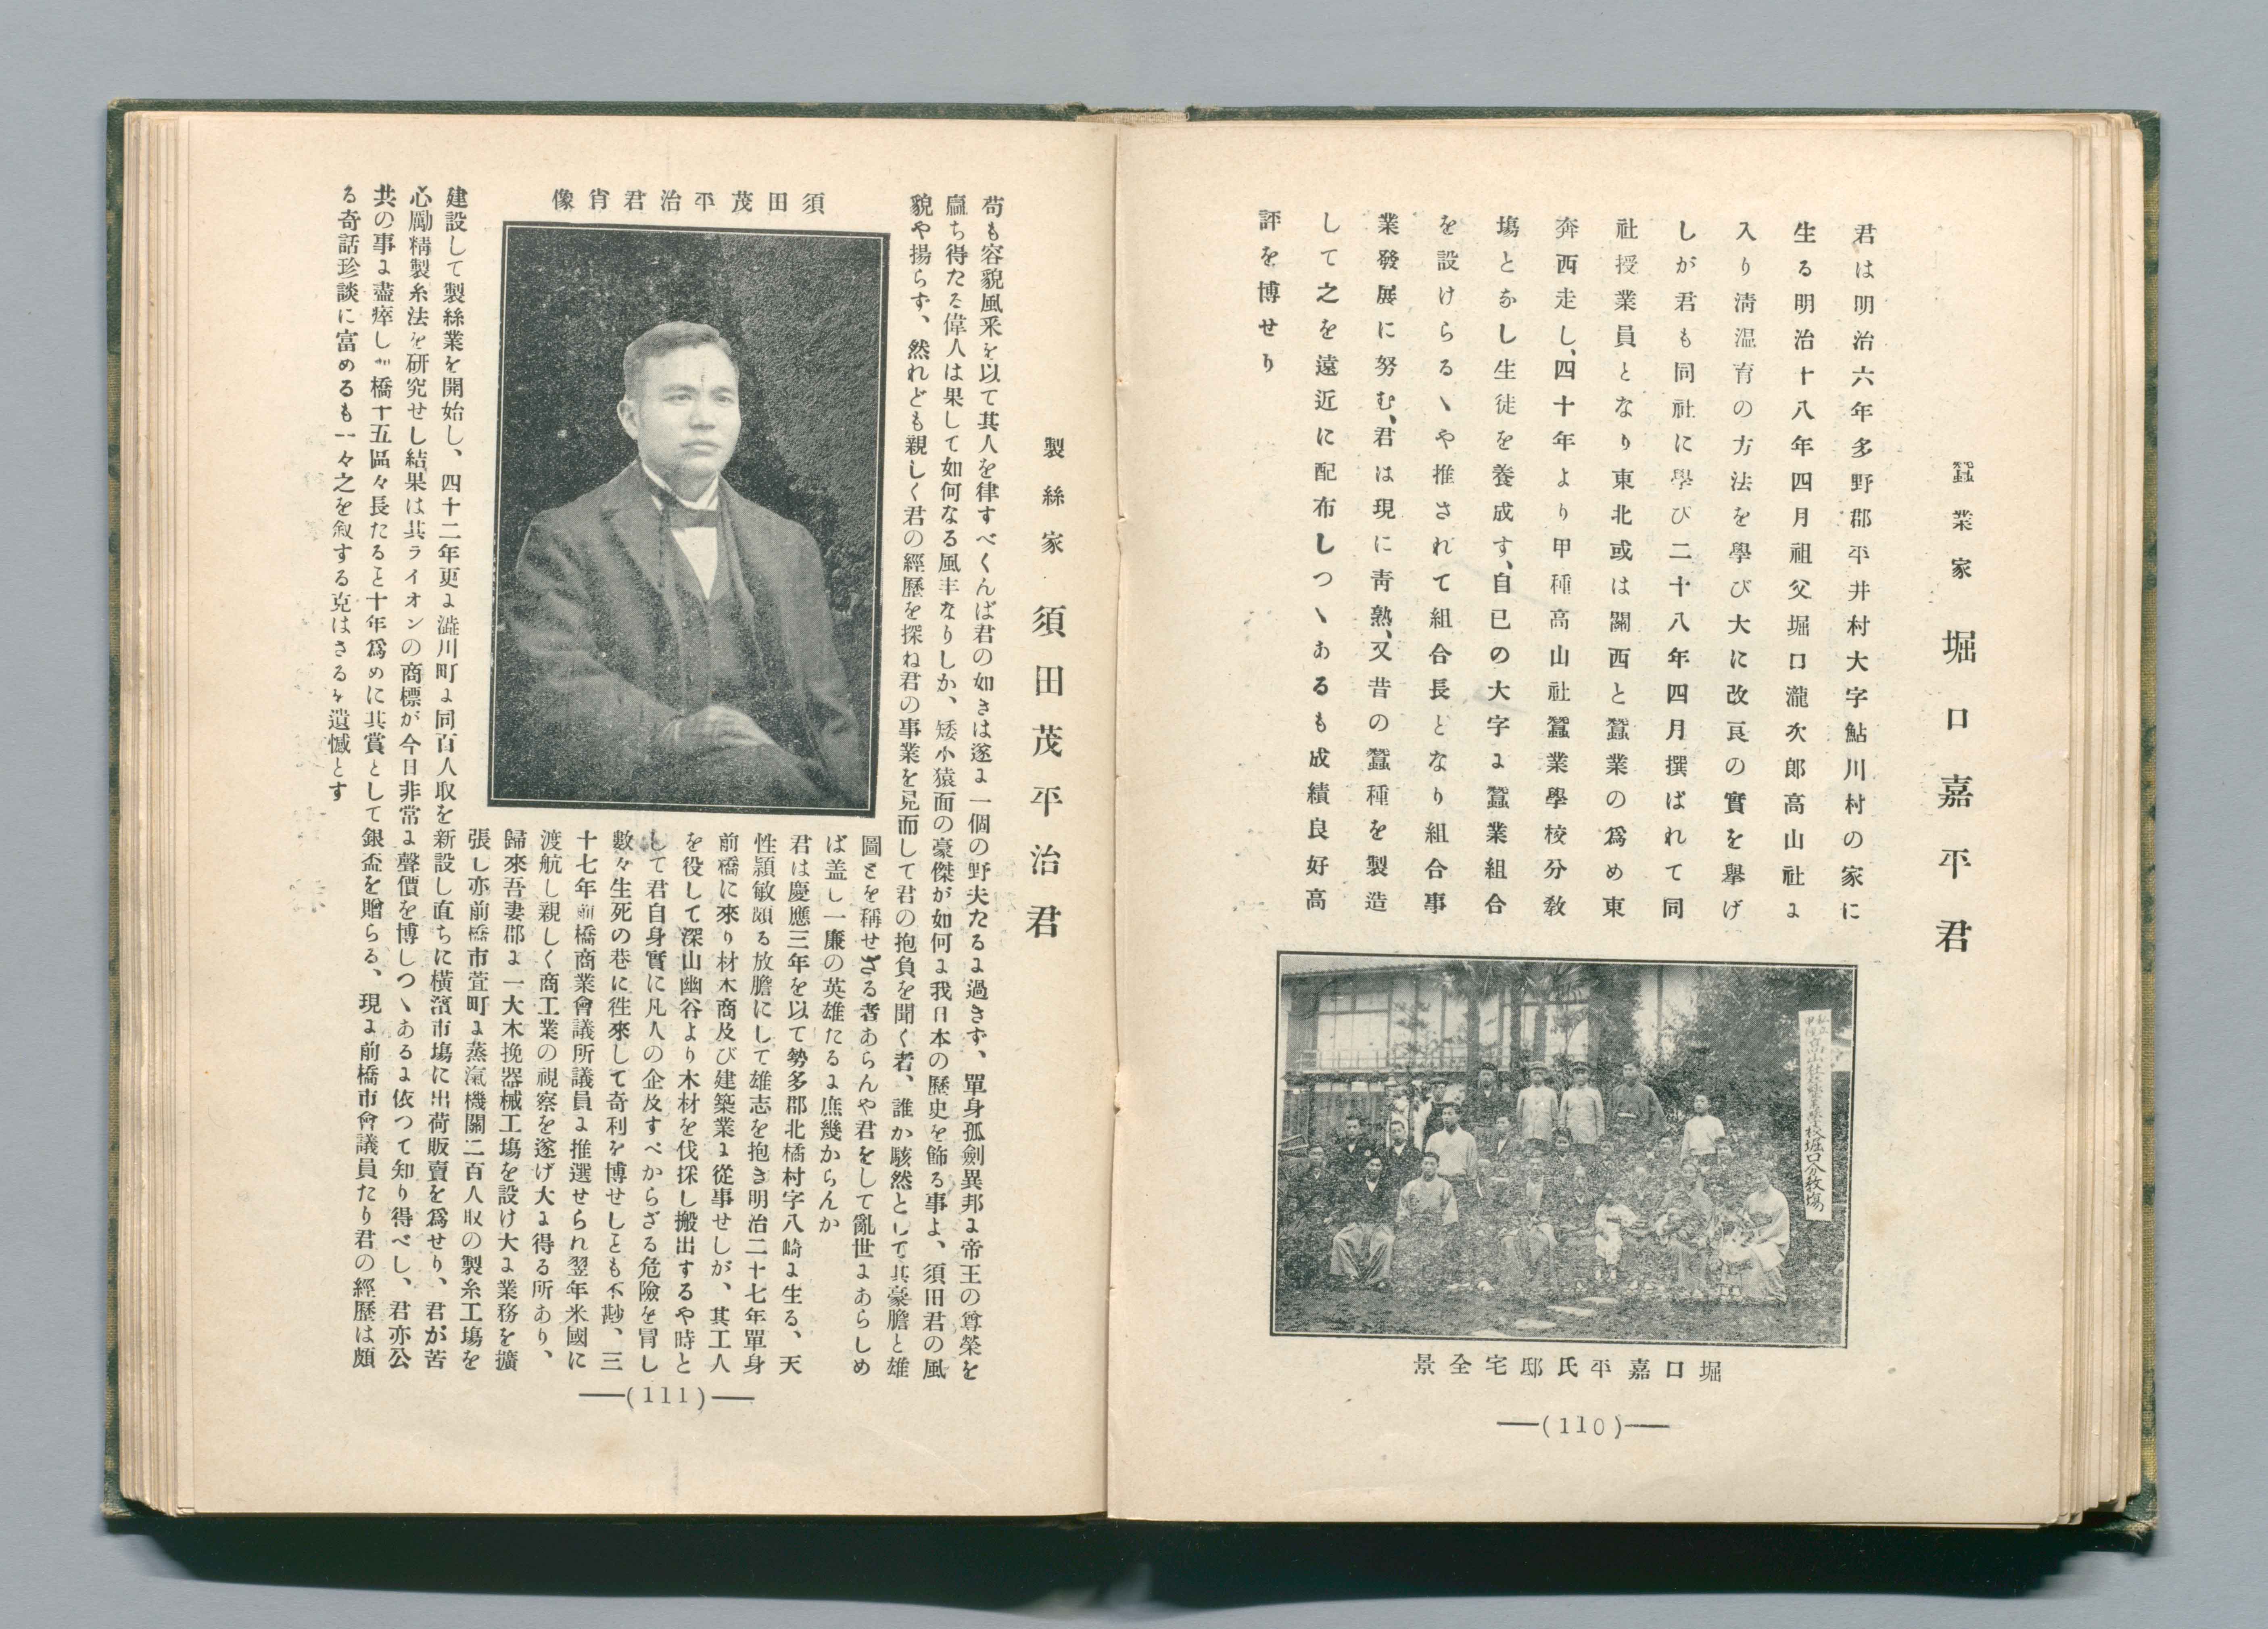 蠶業家 堀口嘉平君
君は明治六年多野郡平井村大字鮎川村の家に
生る明治十八年四月祖父堀口瀧次郎高山社よ
入り淸温育の方法を學び大に改良の實を擧げ
しが君も同社に學び二十八年四月撰ばれて同
社授業員となり東北或は關西と蠶業の爲め東
奔西走し、四十年より甲種高山社蠶業學校分敎
塲となし生徒を養成す、自已の大字よ蠶業組合
を設けらるヽや推されて組合長となり組合事
業發展に努む、君は現に靑熟、又昔の蠶種を製造
して之を遠近に配布しつヽあるも成績良好高
評を博せり
高山社蠶業學校堀口分敎塲
堀口嘉平氏邸宅全景
—(110)—
製絲家 須田茂平治君
苟も容貌風釆を以て其人を律すべくんば君の如きは遂よ一個の野夫たるよ過きず、單身孤劍異邦よ帝王の尊榮を
贏ち得たる偉人は果して如何なる風丰なりしか、矮小猿面の豪傑が如何よ我日本の歷史を飾る事よ、須田君の風
貌や揚らず、然れども親しく君の經歷を探ね君の事業を見而して君の抱負を聞く者、誰か駭然として其豪膽と雄
圖とを稱せざる者あらんや君をして亂世よあらしめ
ば盖し一廉の英雄たるよ庶幾からんか
君は慶應三年を以て勢多郡北橘村字八崎よ生る、天
性頴敏頗る放膽にして雄志を抱き明治二十七年單身
前橋に來り材木商及び建築業よ從事せしが、其工人
を役して深山幽谷より木材を伐採し搬出するや時と
して君自身實に凡人の企及すべからざる危險を冐し
數々生死の巷に徃來して奇利を博せしとも不尠、三
十七年前橋商業會議所議員よ推選せられ翌年米國に
渡航し親しく商工業の視察を遂げ大よ得る所あり、
歸來吾妻郡よ一大木挽器械工塲を設け大よ業務を擴
張し亦前橋市萓町よ蒸滊機關二百人取の製糸工塲を
建設して製絲業を開始し、四十二年更よ澁川町よ同百人取を新設し直ちに橫濱市塲に出荷販賣を爲せり、君が苦
心勵精製糸法を硏究せし結果は其ライオンの商標が今日非常よ聲價を博しつヽあるよ依つて知り得べし、君亦公
共の事よ盡瘁し前橋十五區々長たると十年爲めに其賞として銀盃を贈らる、現よ前橋市會議員たり君の經歷は頗
る奇話珍談に富めるも一々之を叙する克はさるを遺憾とす
須田茂平治君肖像
—(111)—